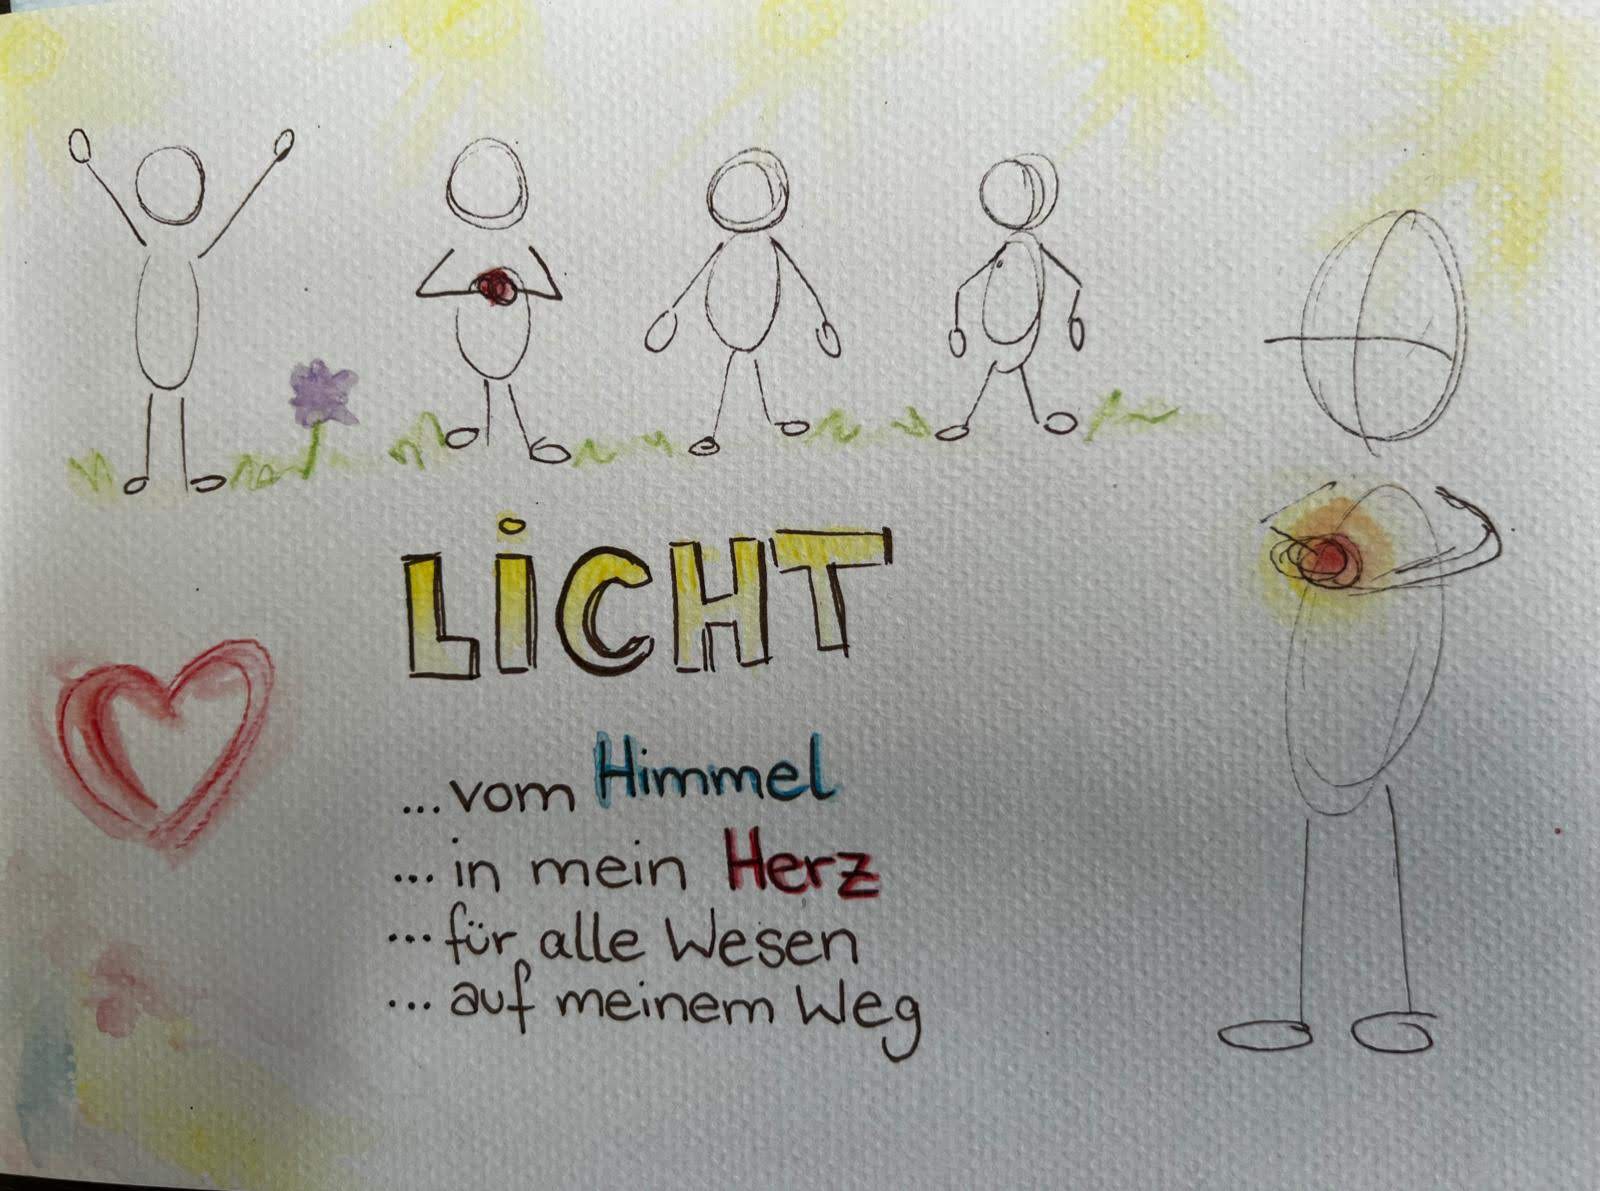 LiCHT
...vom Himmel
...in mein Herz
...für alle Wesen
...auf meinem Weg